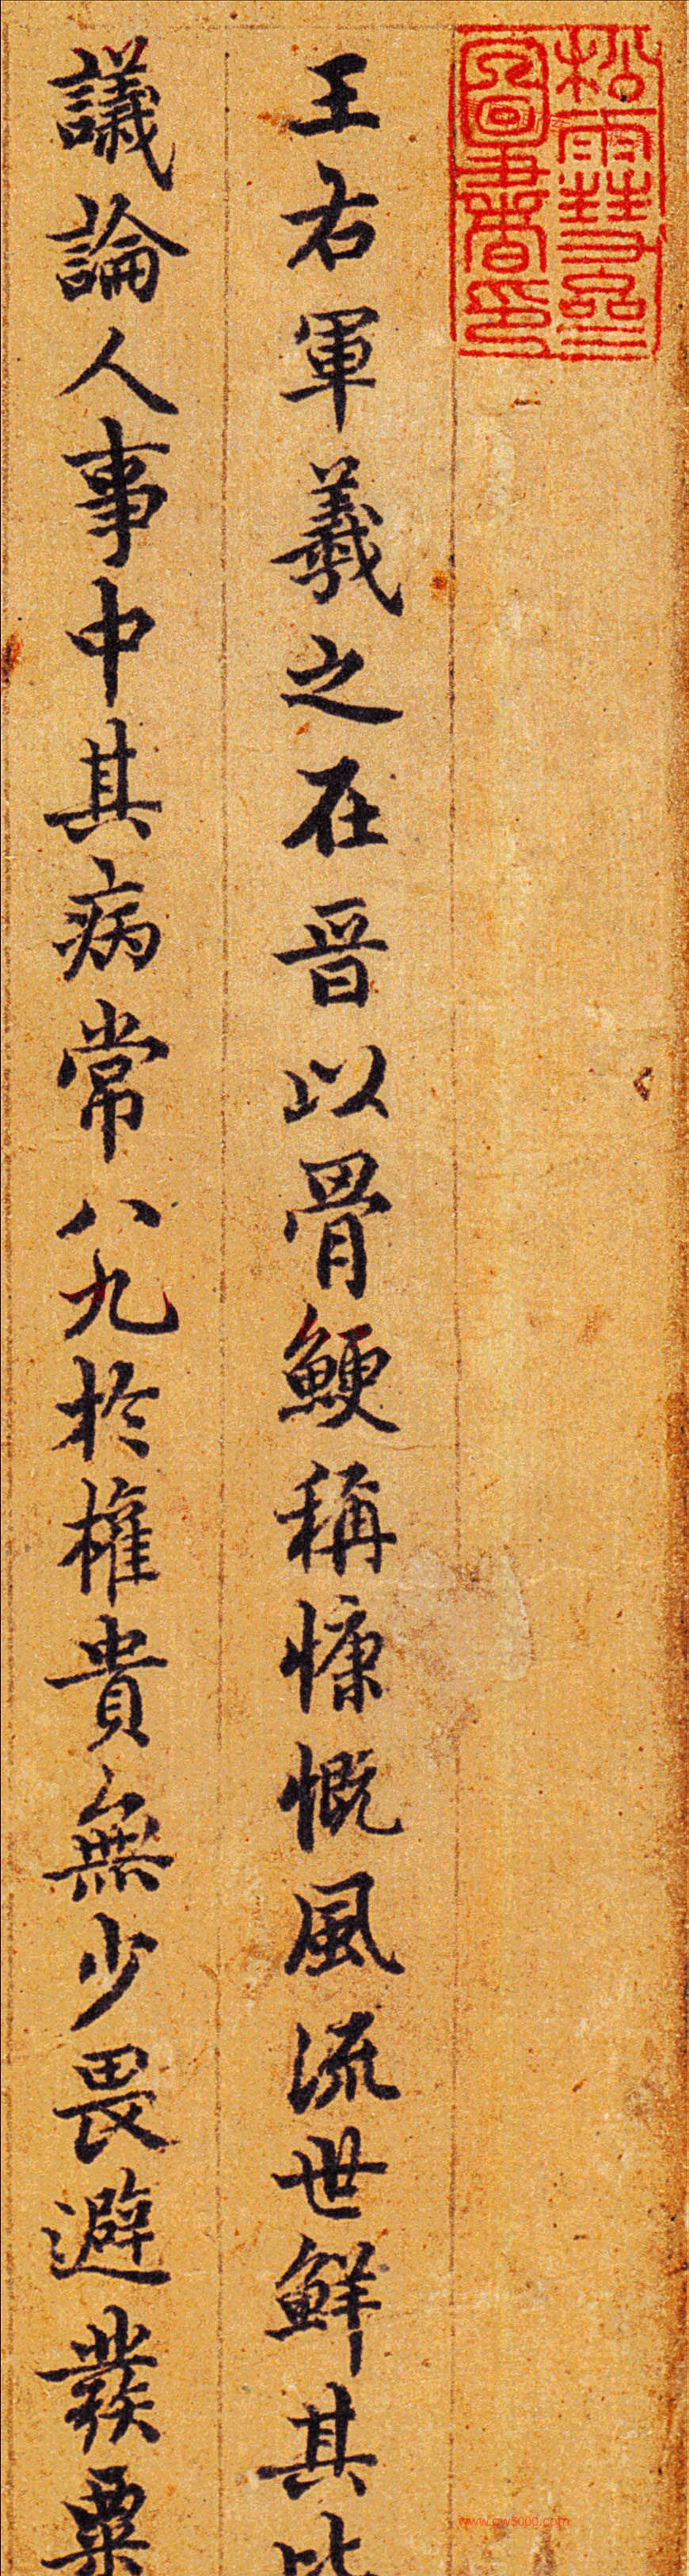 松雪齋
圖書印
王右軍羲之在晉以骨鯁稱慷慨風流世鮮其比
議論人事中其病常八九於權貴無少畏避發粟